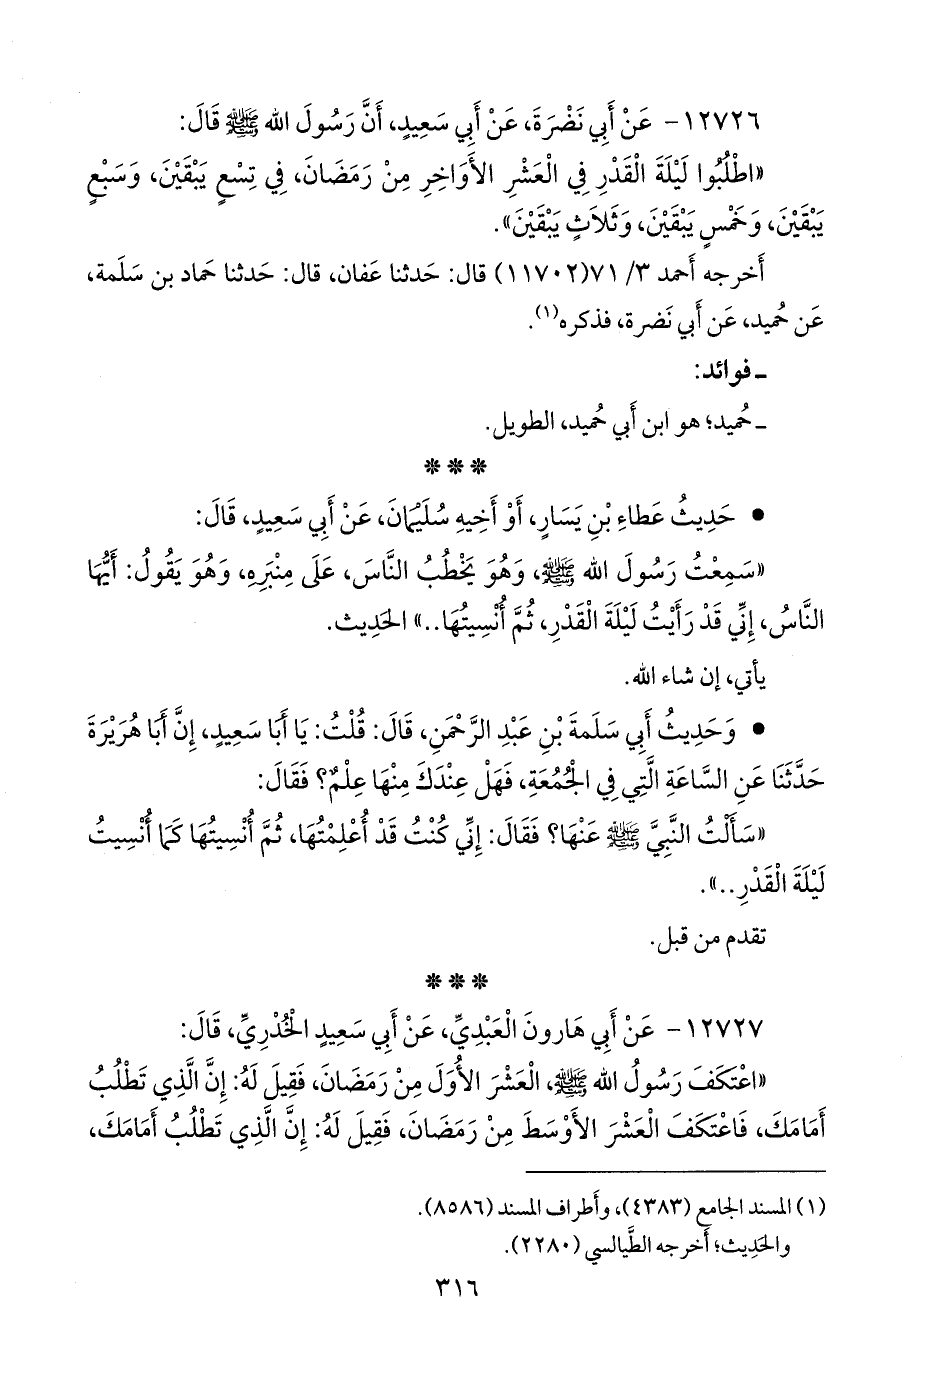 ١٢٧٢٦- عَنْ أَبِي نَضْرَةَ، عَنْ أَبِي سَعِيدٍ، أَنَّ رَسُولَ الله ﷺ قَالَ:
«اطْلُبُوا لَيْلَةَ الْقَدْرِ فِي الْعَشْرِ الأَوَاخِرِ مِنْ رَمَضَانَ، فِي تِسْعٍ يَبْقَيْنَ، وَسَبْعٍ
يَبْقَيْنَ، وَخَمْسٍ يَبْقَيْنَ، وَثَلاَثٍ يَبْقَيْنَ».
أَخرجه أَحمد ٣/ ٧١(١١٧٠٢) قال: حَدثنا عَفان، قال: حَدثنا حَماد بن سَلَمة،
عَن حُميد، عَن أَبي نَضرة، فذكره(١).
ـ فوائد:
ـ حُميد؛ هو ابن أَبي حُميد، الطويل.
***
• حَدِيثُ عَطَاءِ بْنِ يَسَارٍ، أَوْ أَخِيهِ سُلَيْمَانَ، عَنْ أَبِي سَعِيدٍ، قَالَ:
«سَمِعْتُ رَسُولَ الله ﷺ، وَهُوَ يَخْطُبُ النَّاسَ، عَلَى مِنْبَرِهِ، وَهُوَ يَقُولُ: أَيُّهَا
النَّاسُ، إِنِّي قَدْ رَأَيْتُ لَيْلَةَ الْقَدْرِ، ثُمَّ أُنْسِيتُهَا..» الحَدِيث.
يأتي، إن شاء الله.
• وَحَدِيثُ أَبِي سَلَمَةَ بْنِ عَبْدِ الرَّحْمَنِ، قَالَ: قُلْتُ: يَا أَبَا سَعِيدٍ، إِنَّ أَبَا هُرَيْرَةَ
حَدَّثَنَا عَنِ السَّاعَةِ الَّتِي فِي الْجُمُعَةِ، فَهَلْ عِنْدَكَ مِنْهَا عِلْمٌ؟ فَقَالَ:
«سَأَلْتُ النَّبِيَّ ﷺ عَنْهَا؟ فَقَالَ: إِنِّي كُنْتُ قَدْ أُعْلِمْتُهَا، ثُمَّ أُنْسِيتُهَا كَمَا أُنْسِيتُ
لَيْلَةَ الْقَدْرِ..».
تقدم من قبل.
***
١٢٧٢٧- عَنْ أَبِي هَارونَ الْعَبْدِيِّ، عَنْ أَبِي سَعِيدٍ الْخُدْرِيِّ، قَالَ:
«اعْتَكَفَ رَسُولُ الله ﷺ، الْعَشْرَ الأُوَلَ مِنْ رَمَضَانَ، فَقِيلَ لَهُ: إِنَّ الَّذِي تَطْلُبُ
أَمَامَكَ، فَاعْتَكَفَ الْعَشْرَ الأَوْسَطَ مِنْ رَمَضَانَ، فَقِيلَ لَهُ: إِنَّ الَّذِي تَطْلُبُ أَمَامَكَ،
(١) المسند الجامع (٤٣٨٣)، وأَطراف المسند (٨٥٨٦).
والحَدِيث؛ أَخرجه الطَّيالسي (٢٢٨٠).
٣١٦